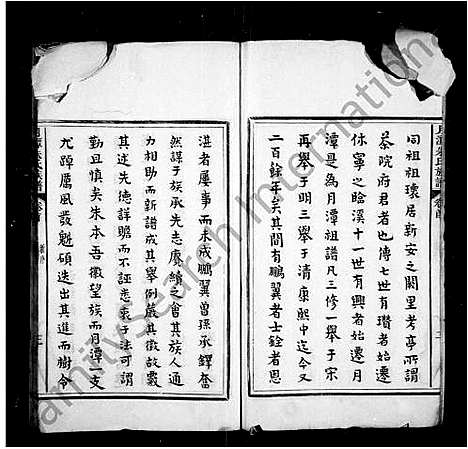 月潭朱氏族譜 卷首
同祖祖瓌居新安之闕里考亭所謂
茶院府君者也傳七世有瓚者始遷
休寧之晗溪十一世有興者始遷月
潭是為月潭祖譜凡三修一舉于宋
再舉于明三舉于清康熙中迄今又
二百餘年矣其間有鵬翼者士銓者思
湛者屢事而未成鵬翼曾孫承鐸奮
然謀于族承先志賡續之會其族人通
力相助而新譜成其舉例嚴其徵故覈
其述先德詳贍而不誣悉衷于法可謂
勤且慎矣朱本吾徽望族而月潭一支
尤踔厲風發魁碩迭出其進而樹令
FamilySearch International